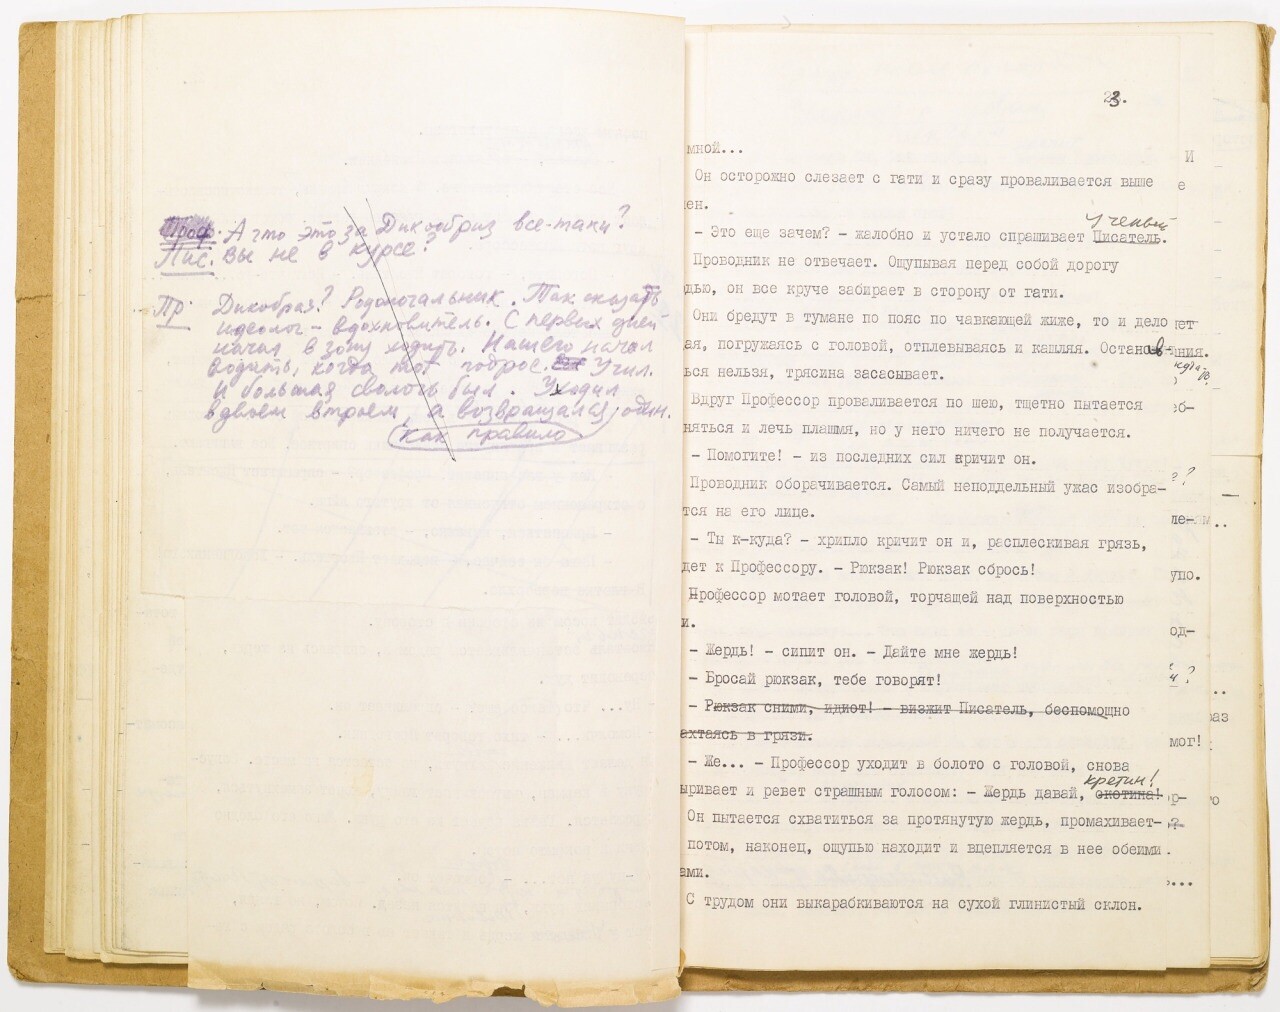 Проф. А что это за Дикообраз все-таки?
Пис. Вы не в курсе?
Пр. Дикобраз? Родоначальник. Так сказать
идеолог – вдохновитель. С первых дней
начал в зону ходить. Нашего начал
водить, когда тот подрос. Учил.
И большая сволочь был. Уходил
вдвоем втроем, а возвращался один.
как правило
23.
мной...
Он осторожно слезает с гати и сразу проваливается выше
ен.
Ученый
– Это еще зачем? – жалобно и устало спрашивает Писатель.
Проводник не отвечает. Ощупывая перед собой дорогу
дью, он все круче забирает в сторону от гати.
Они бредут в тумане по пояс по чавкающей жиже, то и дело
ая, погружаясь с головой, отплевываясь и кашляя. Останав-
ься нельзя, трясина засасывает.
Вдруг Профессор проваливается по шею, тщетно пытается
няться и лечь плашмя, но у него ничего не получается.
– Помогите! – из последних сил кричит он.
Проводник оборачивается. Самый неподдельный ужас изобра-
тся на его лице.
– Ты к-куда? – хрипло кричит он и, расплескивая грязь,
дет к Профессору. – Рюкзак! Рюкзак сбрось!
Профессор мотает головой, торчащей над поверхностью
и.
– Жердь! – сипит он. – Дайте мне жердь!
– Бросай рюкзак, тебе говорят!
– Рюкзак сними, идиот! – визжит Писатель, беспомощно
ахтаясь в грязи.
– Же... – Профессор уходит в болото с головой, снова
кретин!
ыривает и ревет страшным голосом: – Жердь давай, скотина!
Он пытается схватиться за протянутую жердь, промахивает-
потом, наконец, ощупью находит и вцепляется в нее обеими
ами.
С трудом они выкарабкиваются на сухой глинистый склон.
И
е
ния.
упо.
од-
раз
мог!